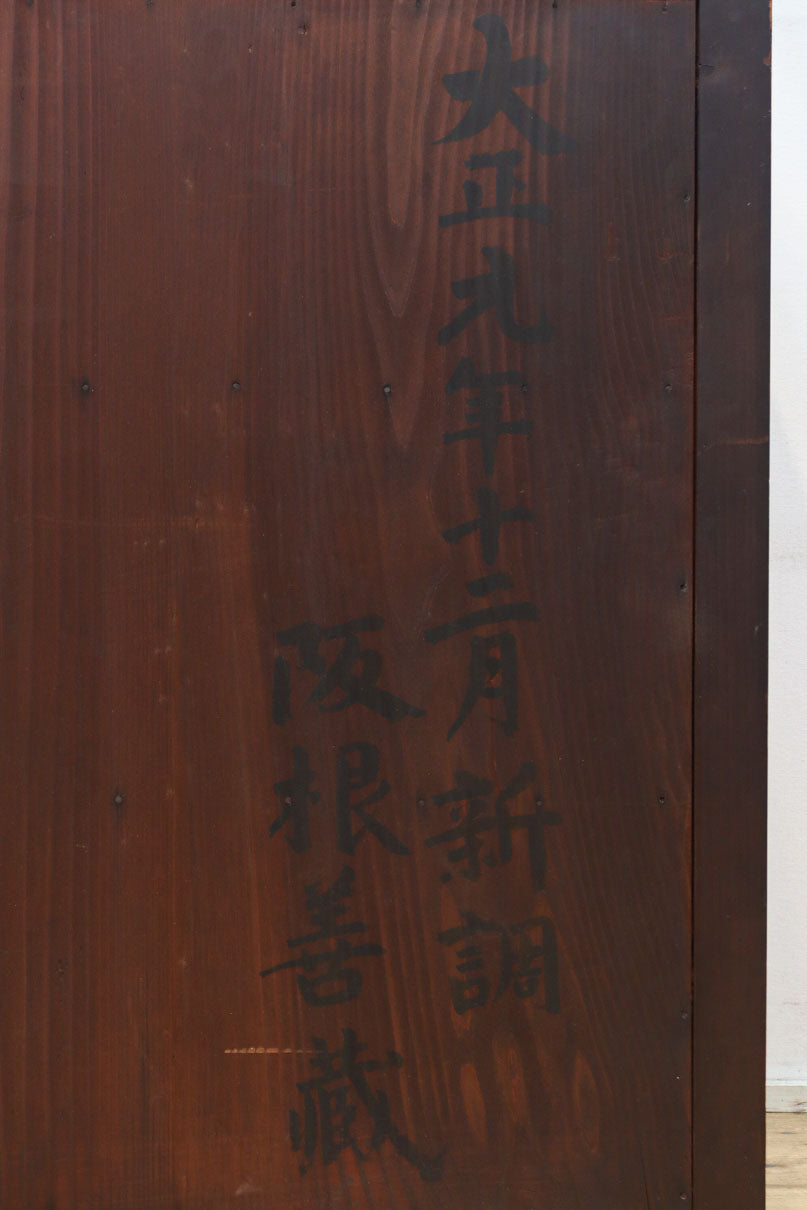 大正九年十二月新調
阪根善藏